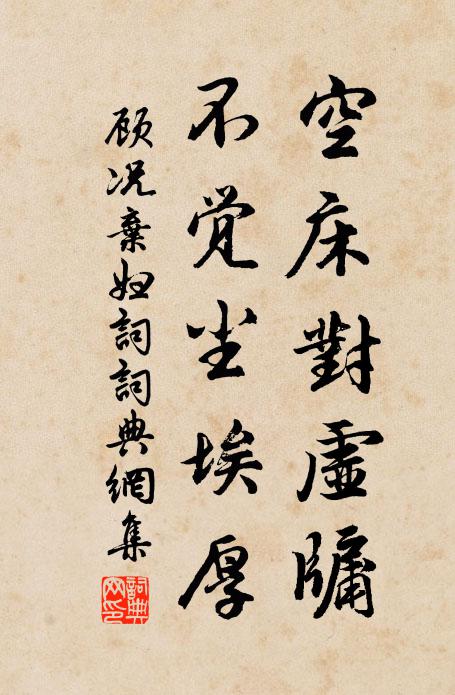 空床對虛牖
不觉尘埃厚
顾况棄妇詞詞典網集
詞典网印